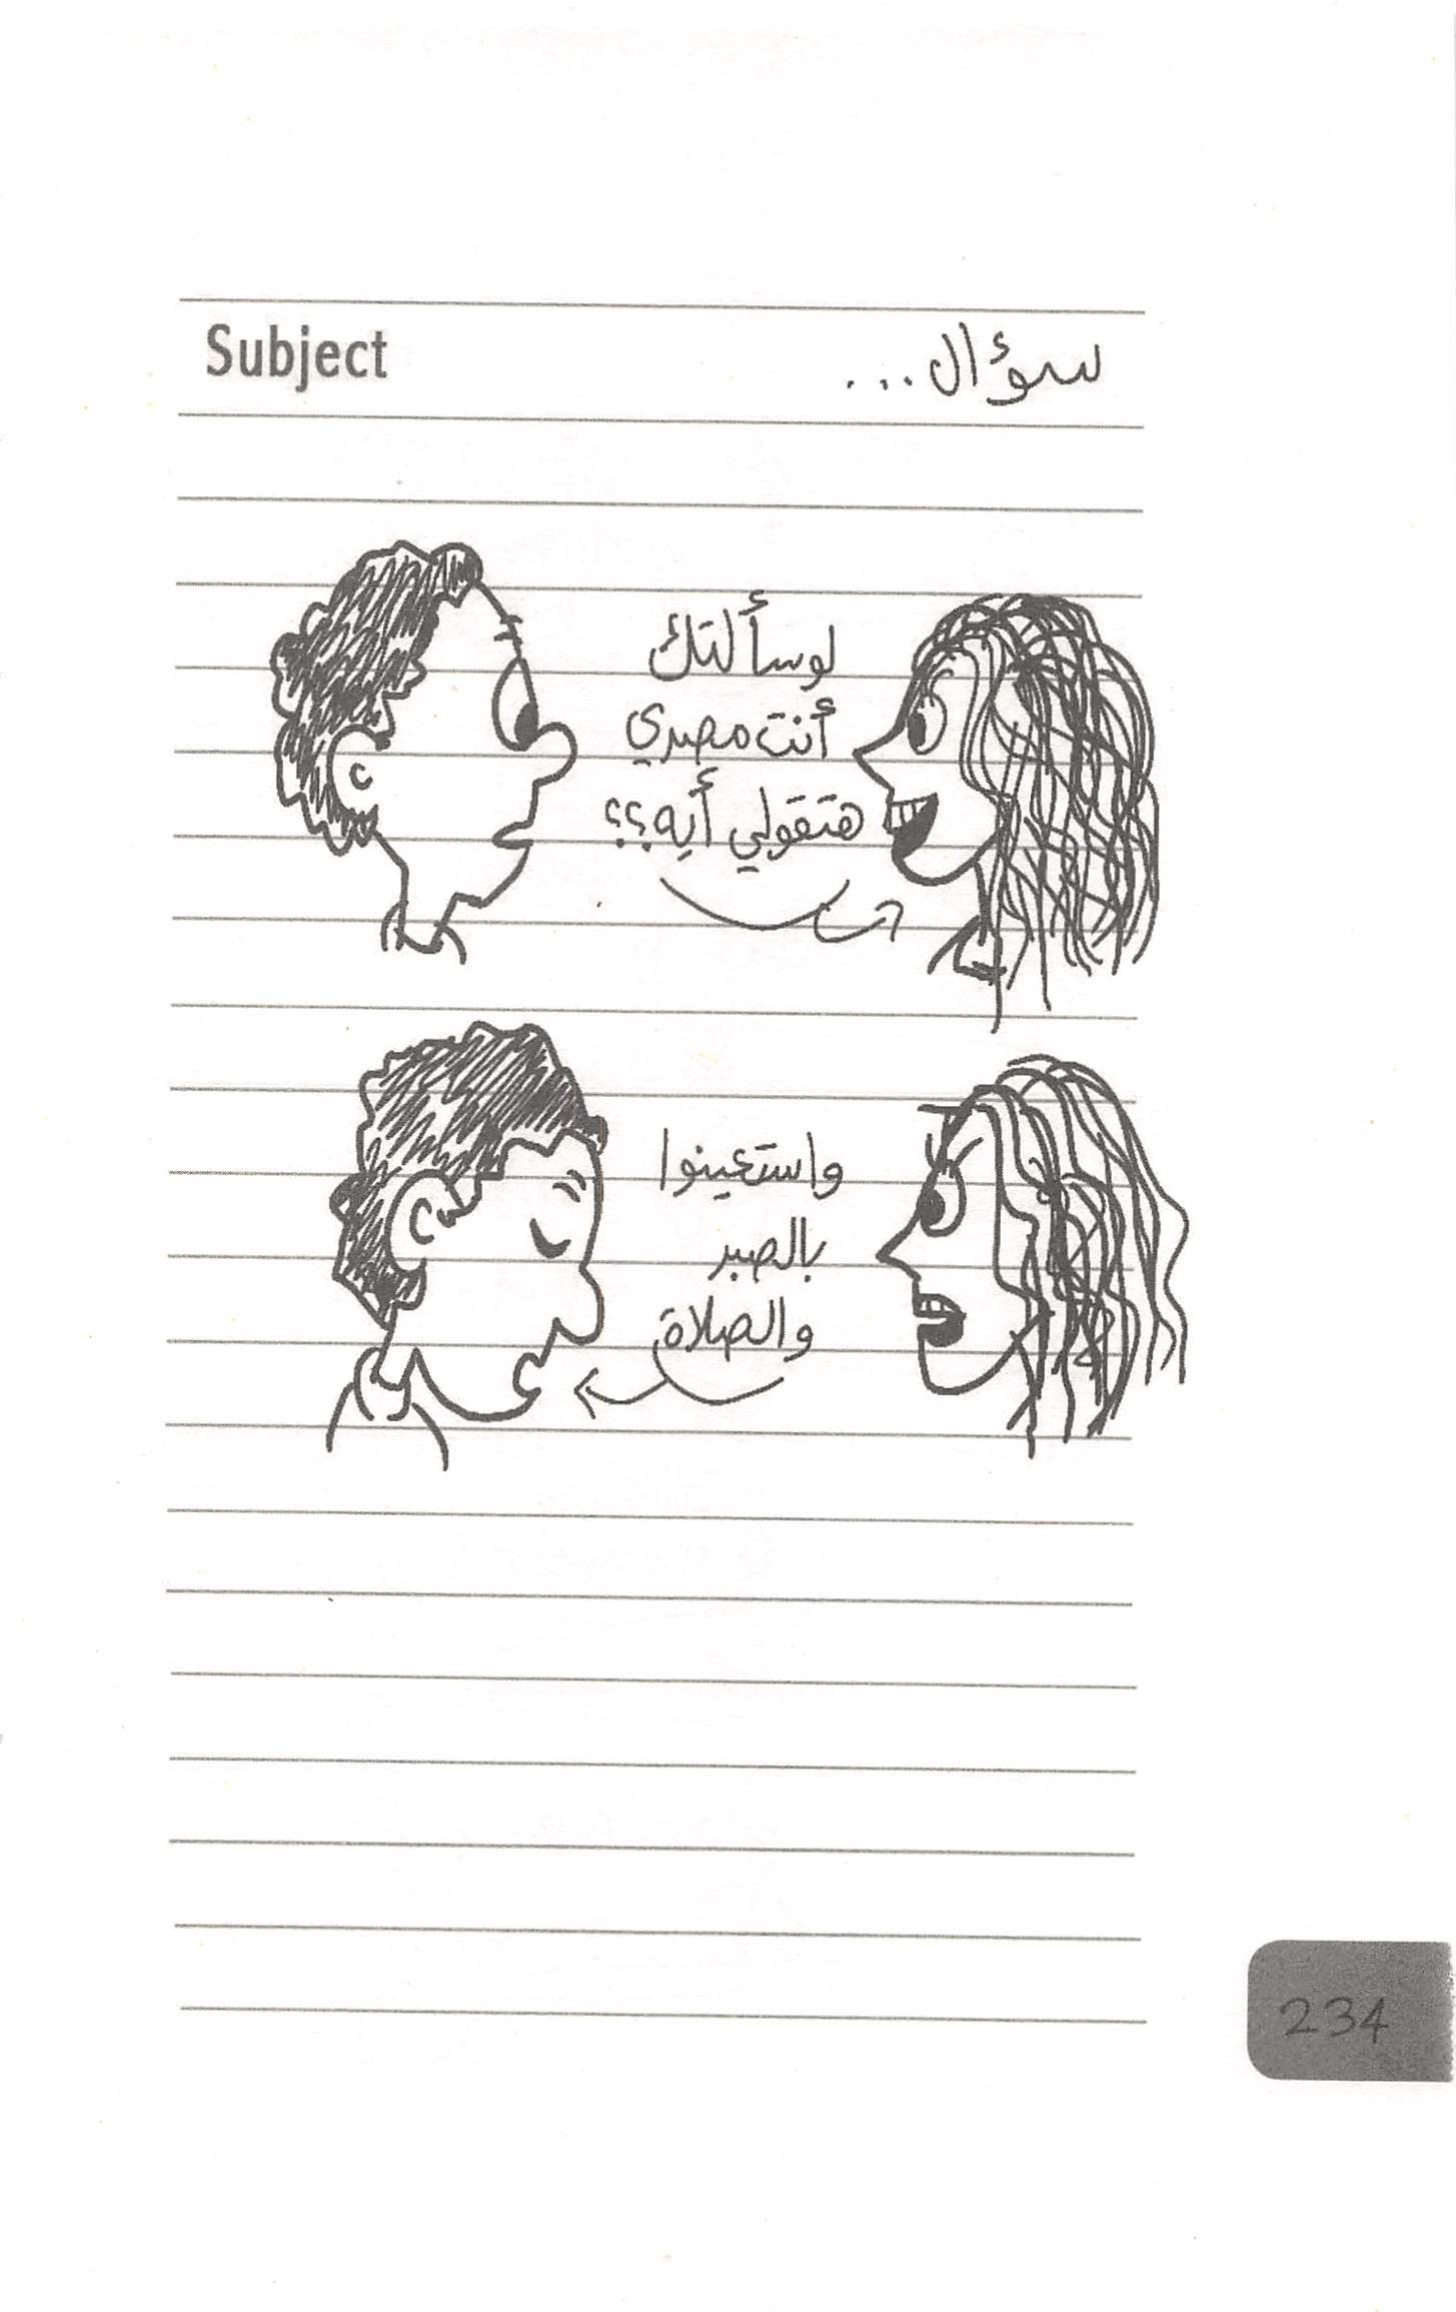 Subject
سؤال...
لو سألتك
أنت مصري
هتقولي أيه؟؟
واستعينوا
بالصبر
والصلاة
234